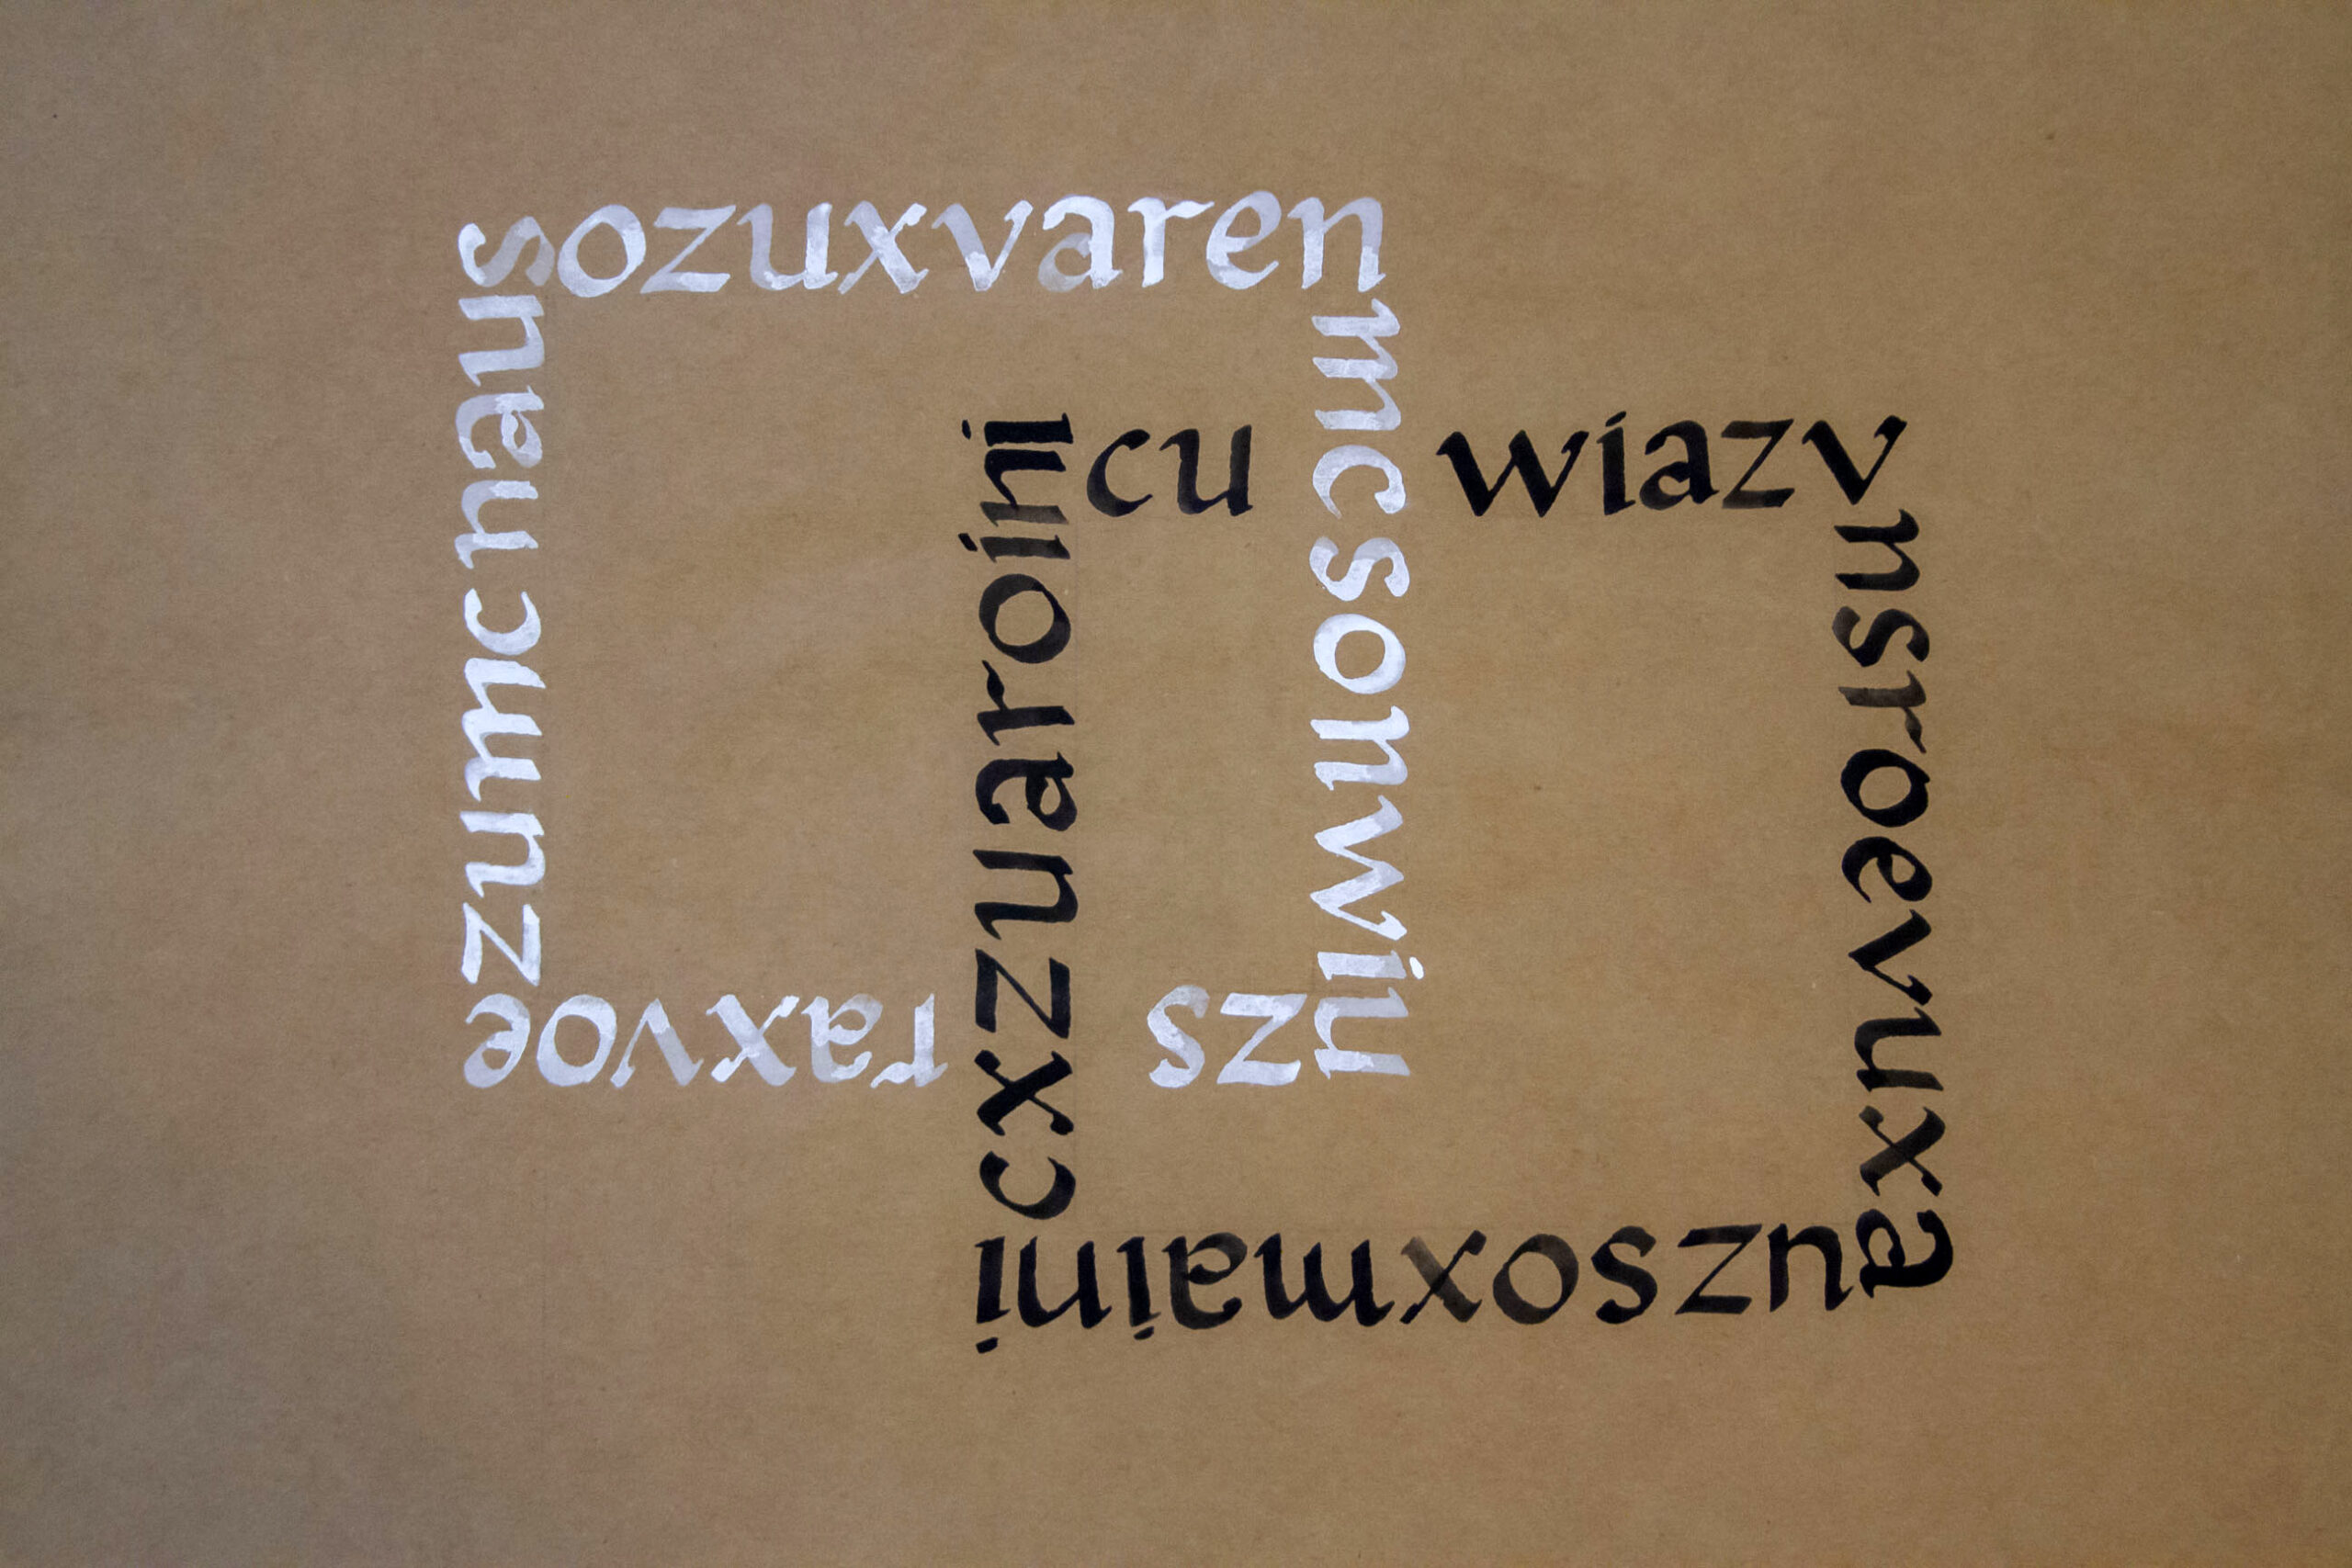 sozuxvaren
mcsonwiu
zs raxvoe
zumcnau
cu wiazv
nsroevuxa
uzsoxmaini
cxzuaroini